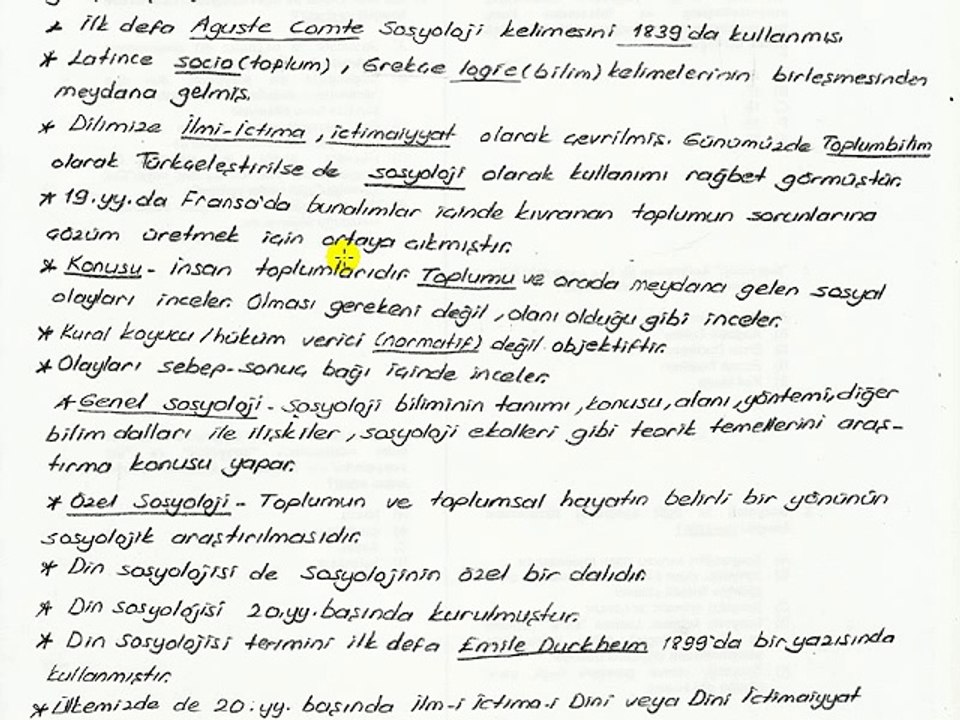 * İlk defa Aguste Comte Sosyoloji kelimesini 1839'da kullanmış.
* Latince socio(toplum), Grekçe logie(bilim) kelimelerinin birleşmesinden
meydana gelmiş.
* Dilimize İlmi-İctima, ictimaiyyat olarak çevrilmiş. Günümüzde Toplumbilim
olarak Türkçeleştirilse de sosyoloji olarak kullanımı rağbet görmüştür.
* 19.yy.da Fransa'da bunalımlar içinde kıvranan toplumun sorunlarına
çözüm üretmek için ortaya çıkmıştır.
* Konusu - insan toplumlarıdır. Toplumu ve orada meydana gelen sosyal
olayları inceler. Olması gerekeni değil, olanı olduğu gibi inceler.
* Kural koyucu/hüküm verici (normatif) değil objektiftir.
* Olayları sebep-sonuç bağı içinde inceler.
* Genel Sosyoloji - Sosyoloji biliminin tanımı, konusu, alanı, yöntemi, diğer
bilim dalları ile ilişkiler, sosyoloji ekolleri gibi teorik temellerini araş-
tırma konusu yapar.
* Özel Sosyoloji - Toplumun ve toplumsal hayatın belirli bir yönünün
sosyolojik araştırılmasıdır.
* Din sosyolojisi de Sosyolojinin özel bir dalıdır.
* Din sosyolojisi 20.yy.başında kurulmuştur.
* Din sosyolojisi terimini ilk defa Emile Durkheim 1899'da bir yazısında
kullanmıştır.
* Ülkemizde de 20.yy. başında ilm-i İctima-i Dini veya Dini İctimaiyyat